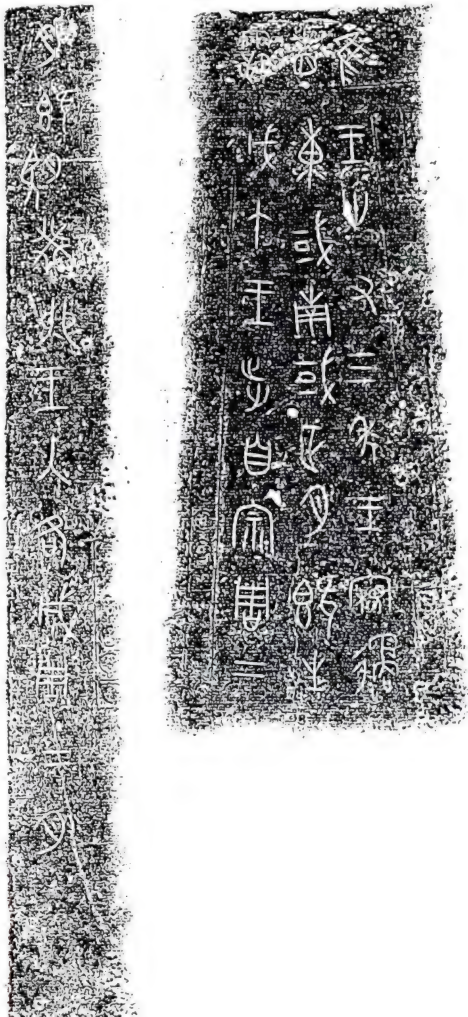 隹王卅又三年王寴遹
省東或南或正月既生
霸戊午王步自宗周二
月既望癸卯王入各成周二月